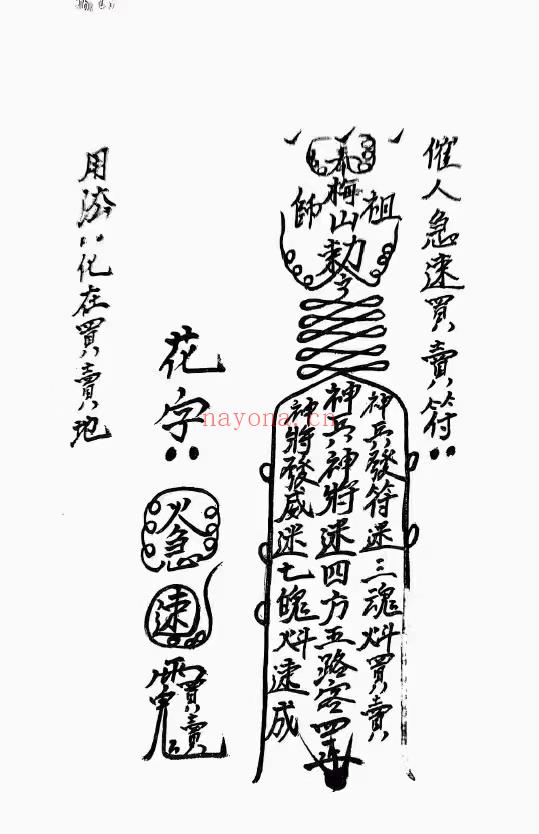 催人急速買賣符：
奉梅山勅令
祖師
神兵發符迷三魂叫買賣
神兵神將速四方五路客
神將發威迷七魄叫速成
花字：
火急
速
買賣
用法：化在買賣地
nayona.cn